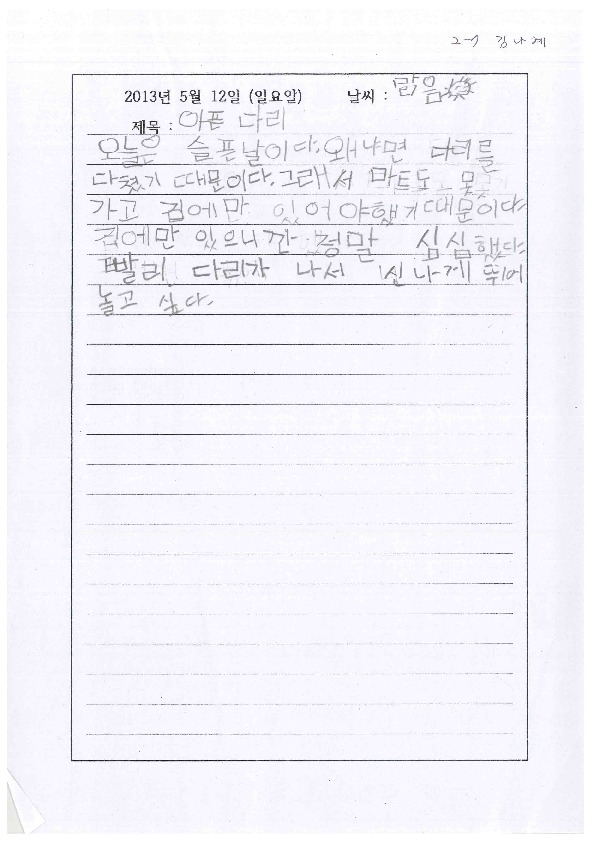 2-7 김나계
2013년 5월 12일 (일요일) 날씨 : 맑음
제목 : 아픈 다리
오늘은 슬픈날이다. 왜냐면 다리를
다쳤기 때문이다. 그래서 마트도 못
가고 집에만 있어야했기때문이다
집에만 있으니깐 정말 심심했다
빨리 다리가 나서 신나게 뛰어
놀고 싶다.